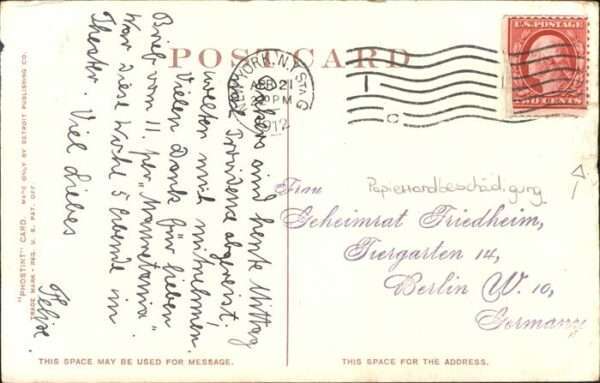 POST CARD
NEW YORK, N.Y. STA. G
APR 21
PM
1912
U.S. POSTAGE
TWO CENTS
sind heute Mittag
abgereist!
wollten mich mitnehmen.
Vielen Dank für lieben
Brief vom 11. per „Mauretania".
War diese Woche 5 Abende im
Theater. Viel Liebes
Felix.
Frau
Papierrandbeschädigung
Geheimrat Friedheim,
Tiergarten 14,
Berlin W. 10,
Germany
"PHOSTINT" CARD. MADE ONLY BY DETROIT PUBLISHING CO.
TRADE MARK - REG. U. S. PAT. OFF.
THIS SPACE MAY BE USED FOR MESSAGE.
THIS SPACE FOR THE ADDRESS.